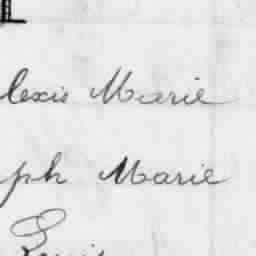 lexis Marie
ph Marie
Louis